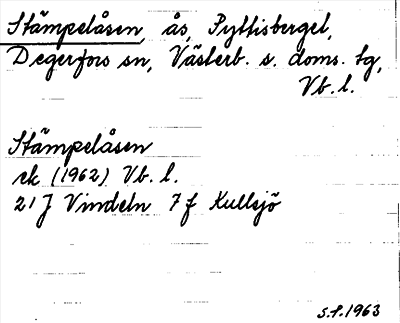 Stämpelåsen, ås, Pyttisberget,
Degerfors sn, Västerb. s. doms. tg,
Vb. l.
Stämpelåsen
rk (1962) Vb. l.
21 J Vindeln 7 f Kullsjö
S.P.1963